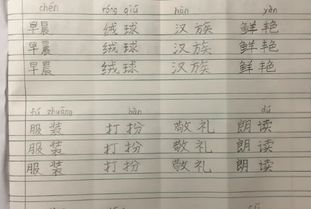 chén róng qiú hàn yàn
早晨 绒球 汉族 鲜艳
早晨 绒球 汉族 鲜艳
早晨 绒球 汉族 鲜艳
fú zhuāng bàn dú
服装 打扮 敬礼 朗读
服装 打扮 敬礼 朗读
服装 打扮 敬礼 朗读